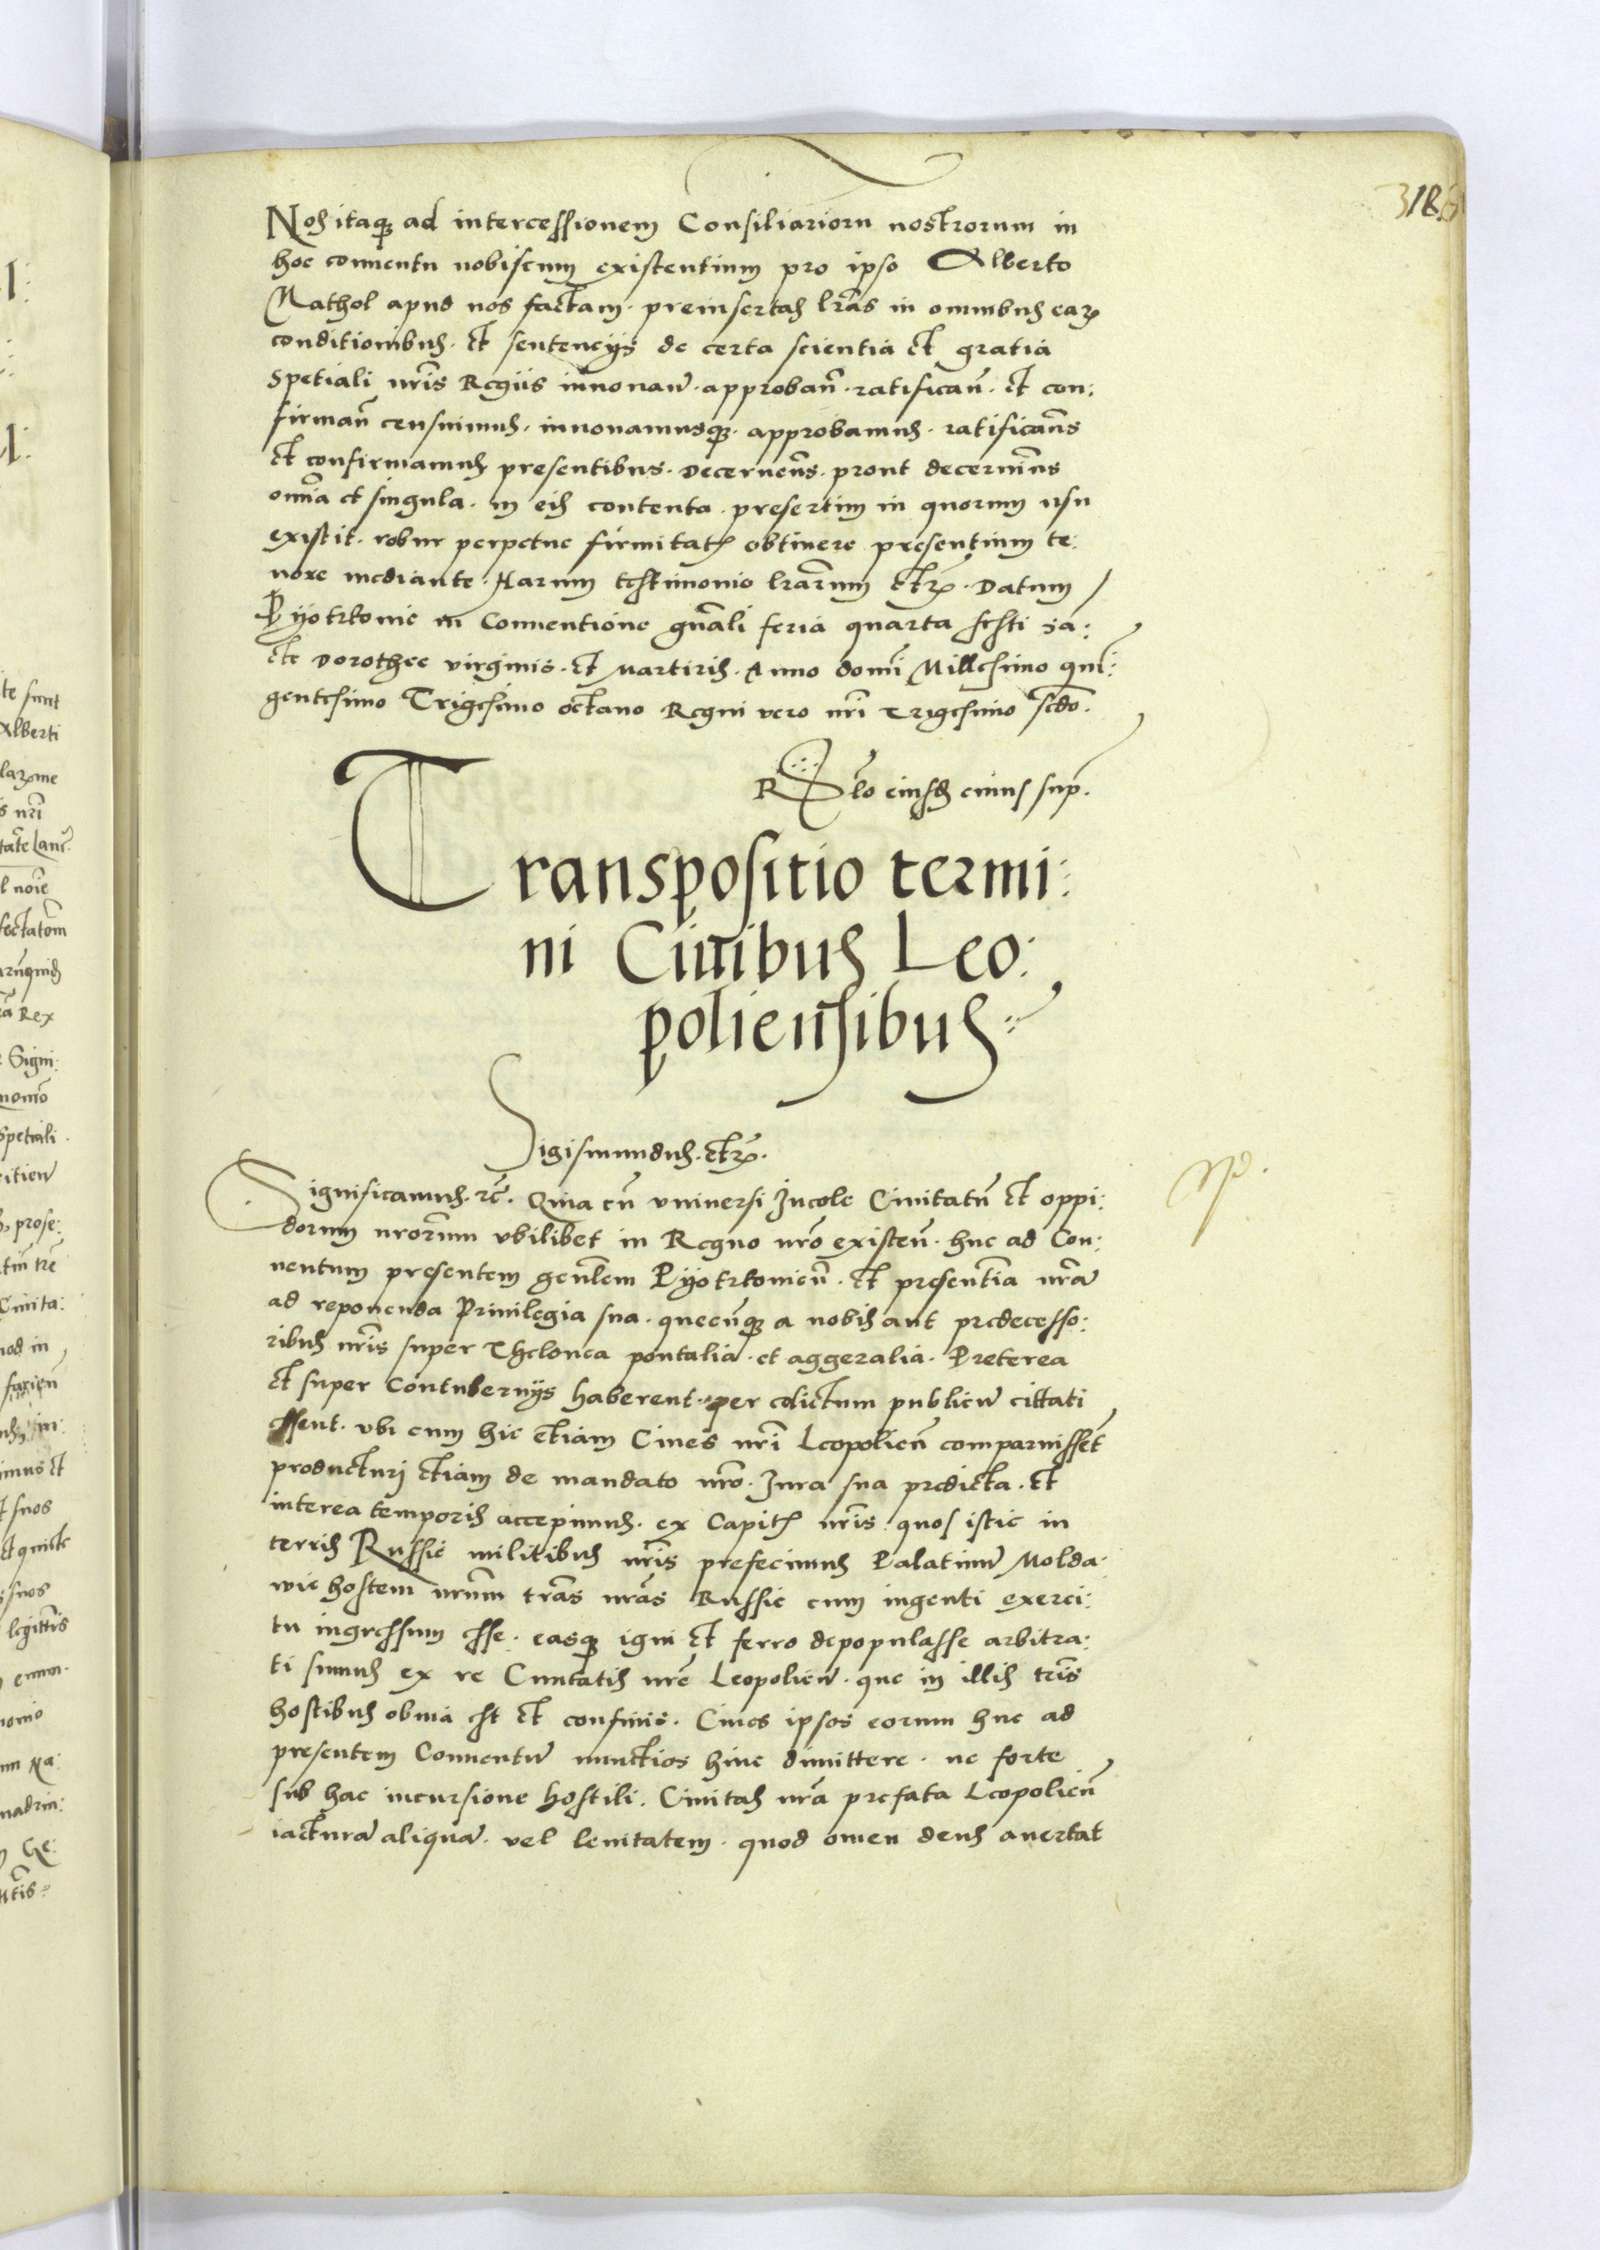 318
Nos itaq ad intercessionem Consiliarioru nostrorum in
hoc conventu nobiscum existentium pro ipso Alberto
Mathol apud nos factam. preinsertas lras in omnibus earz
conditionibus. et sentencÿs de certa scientia et gratia
spetiali nris Regiis innovan. approban. ratifican. et con:
firman censuimus. innovamusq. approbamus. ratificams
et confirmamus presentibus. decernens. prout decernims
omia et singula. in eis contenta. presertim in quorum usu
existit. robur perpetue firmitatis obtinere presentium te:
nore mediante. Harum testimonio lrarum etz. Datum
Pÿotrkovie in Conventione gnali feria quarta festi sa:
cte Dorothee virginis. et Martiris. Anno domi Millesimo qui:
gentesimo Trigesimo octavo Regni vero nri Trigesimo scdo.
Rlo eiusd cuius sup.
Transpositio termi:
ni Civibus Leo:
poliensibus:
Sigismundus. etz.
Significamus. rc. Quia cu universi Incole Civitatu et oppi:
dorum nrorum ubilibet in Regno nro existen. huc ad Con:
ventum presentem genlem Pÿotrkovien. et presentia nra
ad reponenda Privilegia sua. quecunq a nobis aut predecesso:
ribus nris super Thelonea pontalia. et aggeralia. Preterea
et super Contubernÿs haberent. per edictum publicu cittati
essent. ubi cum hic etiam Cives nri Leopolien comparuissent
producturi etiam de mandato nro. Iura sua predicta. et
interea temporis accepimus. ex Capitis nris. quos istic in
terris Russie militibus nris prefecimus Palatinu Molda:
vie hostem nrum tras nras Russie cum ingenti exerci:
tu ingressum esse. easq igni et ferro depopulasse arbitra:
ti sumus ex re Civitatis nre Leopolien. que in illis tris
hostibus obvia est et confinis. Cives ipsos eorum huc ad
presentem Conventu nunctios hinc dimittere. ne forte
sub hac incursione hostili. Civitas nra prefata Leopolien
iactura aliqua. vel levitatem. quod omen deus avertat